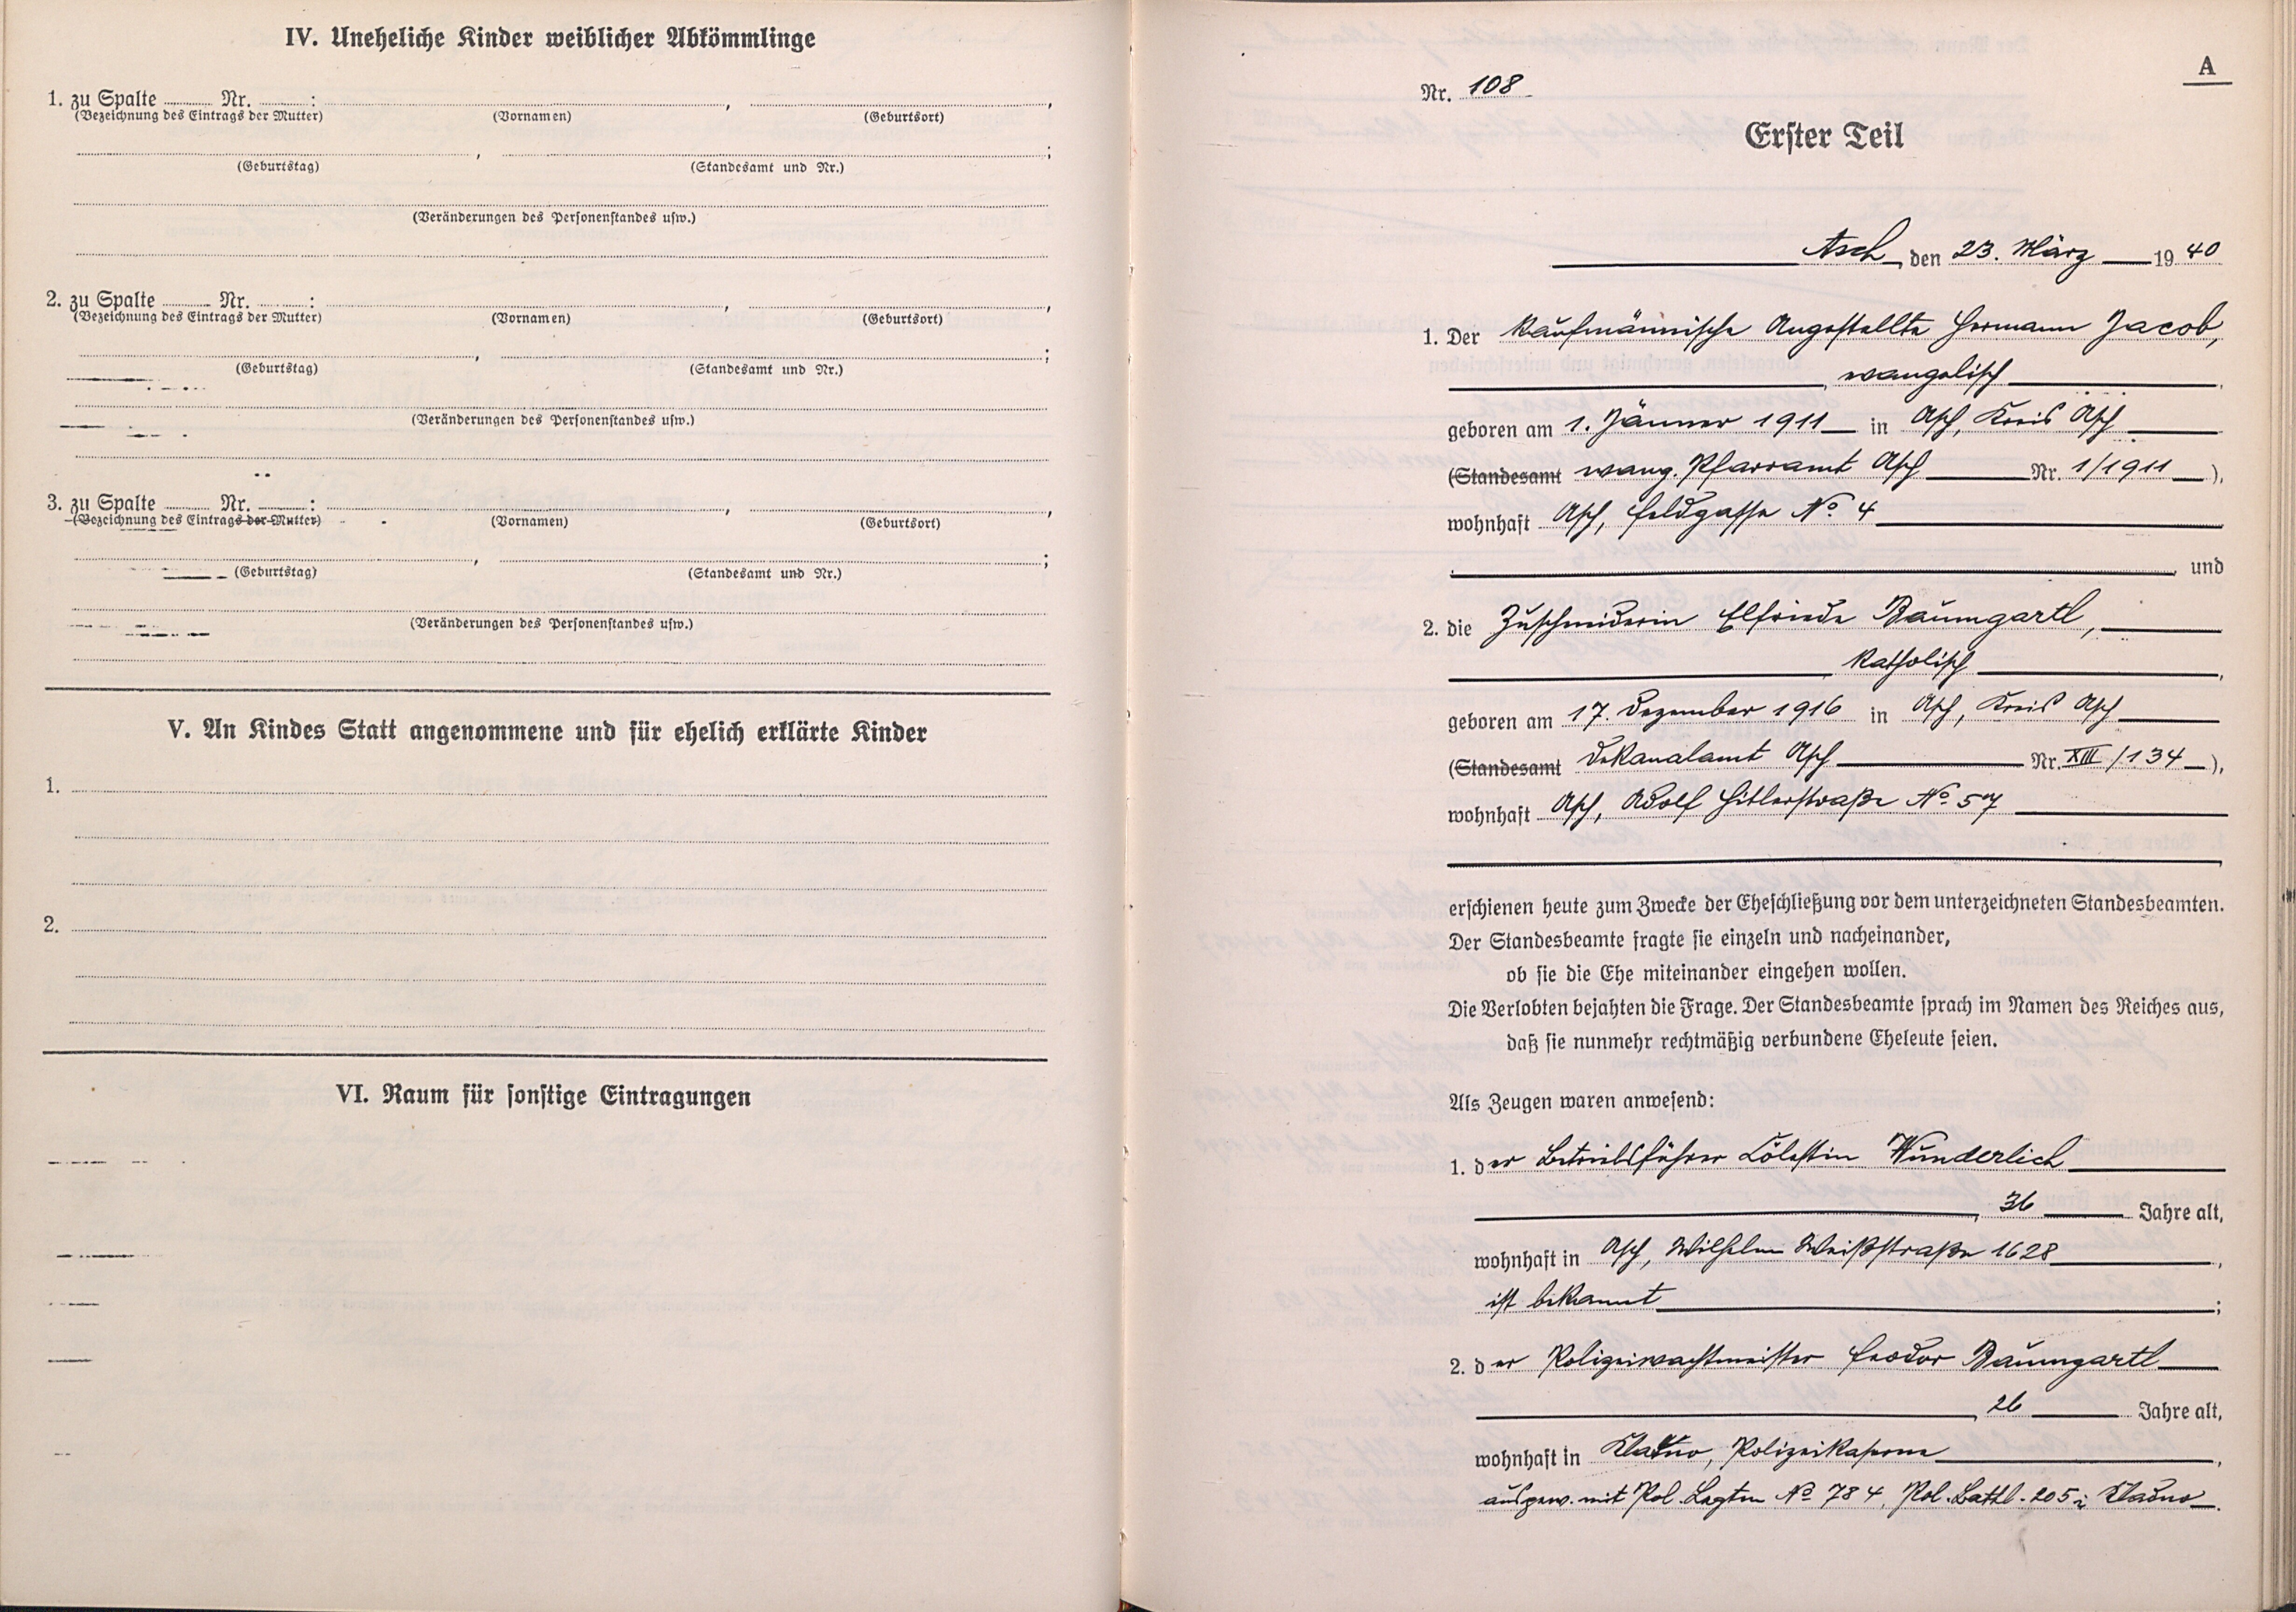 IV. Uneheliche Kinder weiblicher Abkömmlinge
1. zu Spalte ........ Nr. ........: ........, ........,
(Bezeichnung des Eintrags der Mutter) (Vornamen) (Geburtsort)
........, ........;
(Geburtstag) (Standesamt und Nr.)
(Veränderungen des Personenstandes usw.)
2. zu Spalte ........ Nr. ........: ........, ........,
(Bezeichnung des Eintrags der Mutter) (Vornamen) (Geburtsort)
........, ........;
(Geburtstag) (Standesamt und Nr.)
(Veränderungen des Personenstandes usw.)
3. zu Spalte ........ Nr. ........: ........, ........,
(Bezeichnung des Eintrags der Mutter) (Vornamen) (Geburtsort)
........, ........;
(Geburtstag) (Standesamt und Nr.)
(Veränderungen des Personenstandes usw.)
V. An Kindes Statt angenommene und für ehelich erklärte Kinder
1.
2.
VI. Raum für sonstige Eintragungen
A
Nr. 108
Erster Teil
Asch, den 23. März 1940
1. Der kaufmännische Angestellte Hermann Jacob,
evangelisch,
geboren am 1. Jänner 1911 in Asch, Kreis Asch
(Standesamt evang. Pfarramt Asch Nr. 1/1911),
wohnhaft Asch, Feldgasse No 4
, und
2. die Zuschneiderin Elfriede Baumgartl,
katholisch,
geboren am 17. Dezember 1916 in Asch, Kreis Asch
(Standesamt Dekanalamt Asch Nr. XIII/134),
wohnhaft Asch, Adolf Hitlerstraße No 57
erschienen heute zum Zwecke der Eheschließung vor dem unterzeichneten Standesbeamten.
Der Standesbeamte fragte sie einzeln und nacheinander,
ob sie die Ehe miteinander eingehen wollen.
Die Verlobten bejahten die Frage. Der Standesbeamte sprach im Namen des Reiches aus,
daß sie nunmehr rechtmäßig verbundene Eheleute seien.
Als Zeugen waren anwesend:
1. der Betriebsführer Cölestin Wunderlich
, 36 Jahre alt,
wohnhaft in Asch, Wilhelm Weißstraße 1628,
ist bekannt;
2. der Polizeiwachtmeister Feodor Baumgartl
, 26 Jahre alt,
wohnhaft in Kladno, Polizeikaserne,
ausgew. mit Pol. Legtm No 784, Pol. Battl. 205 i. Kladno.